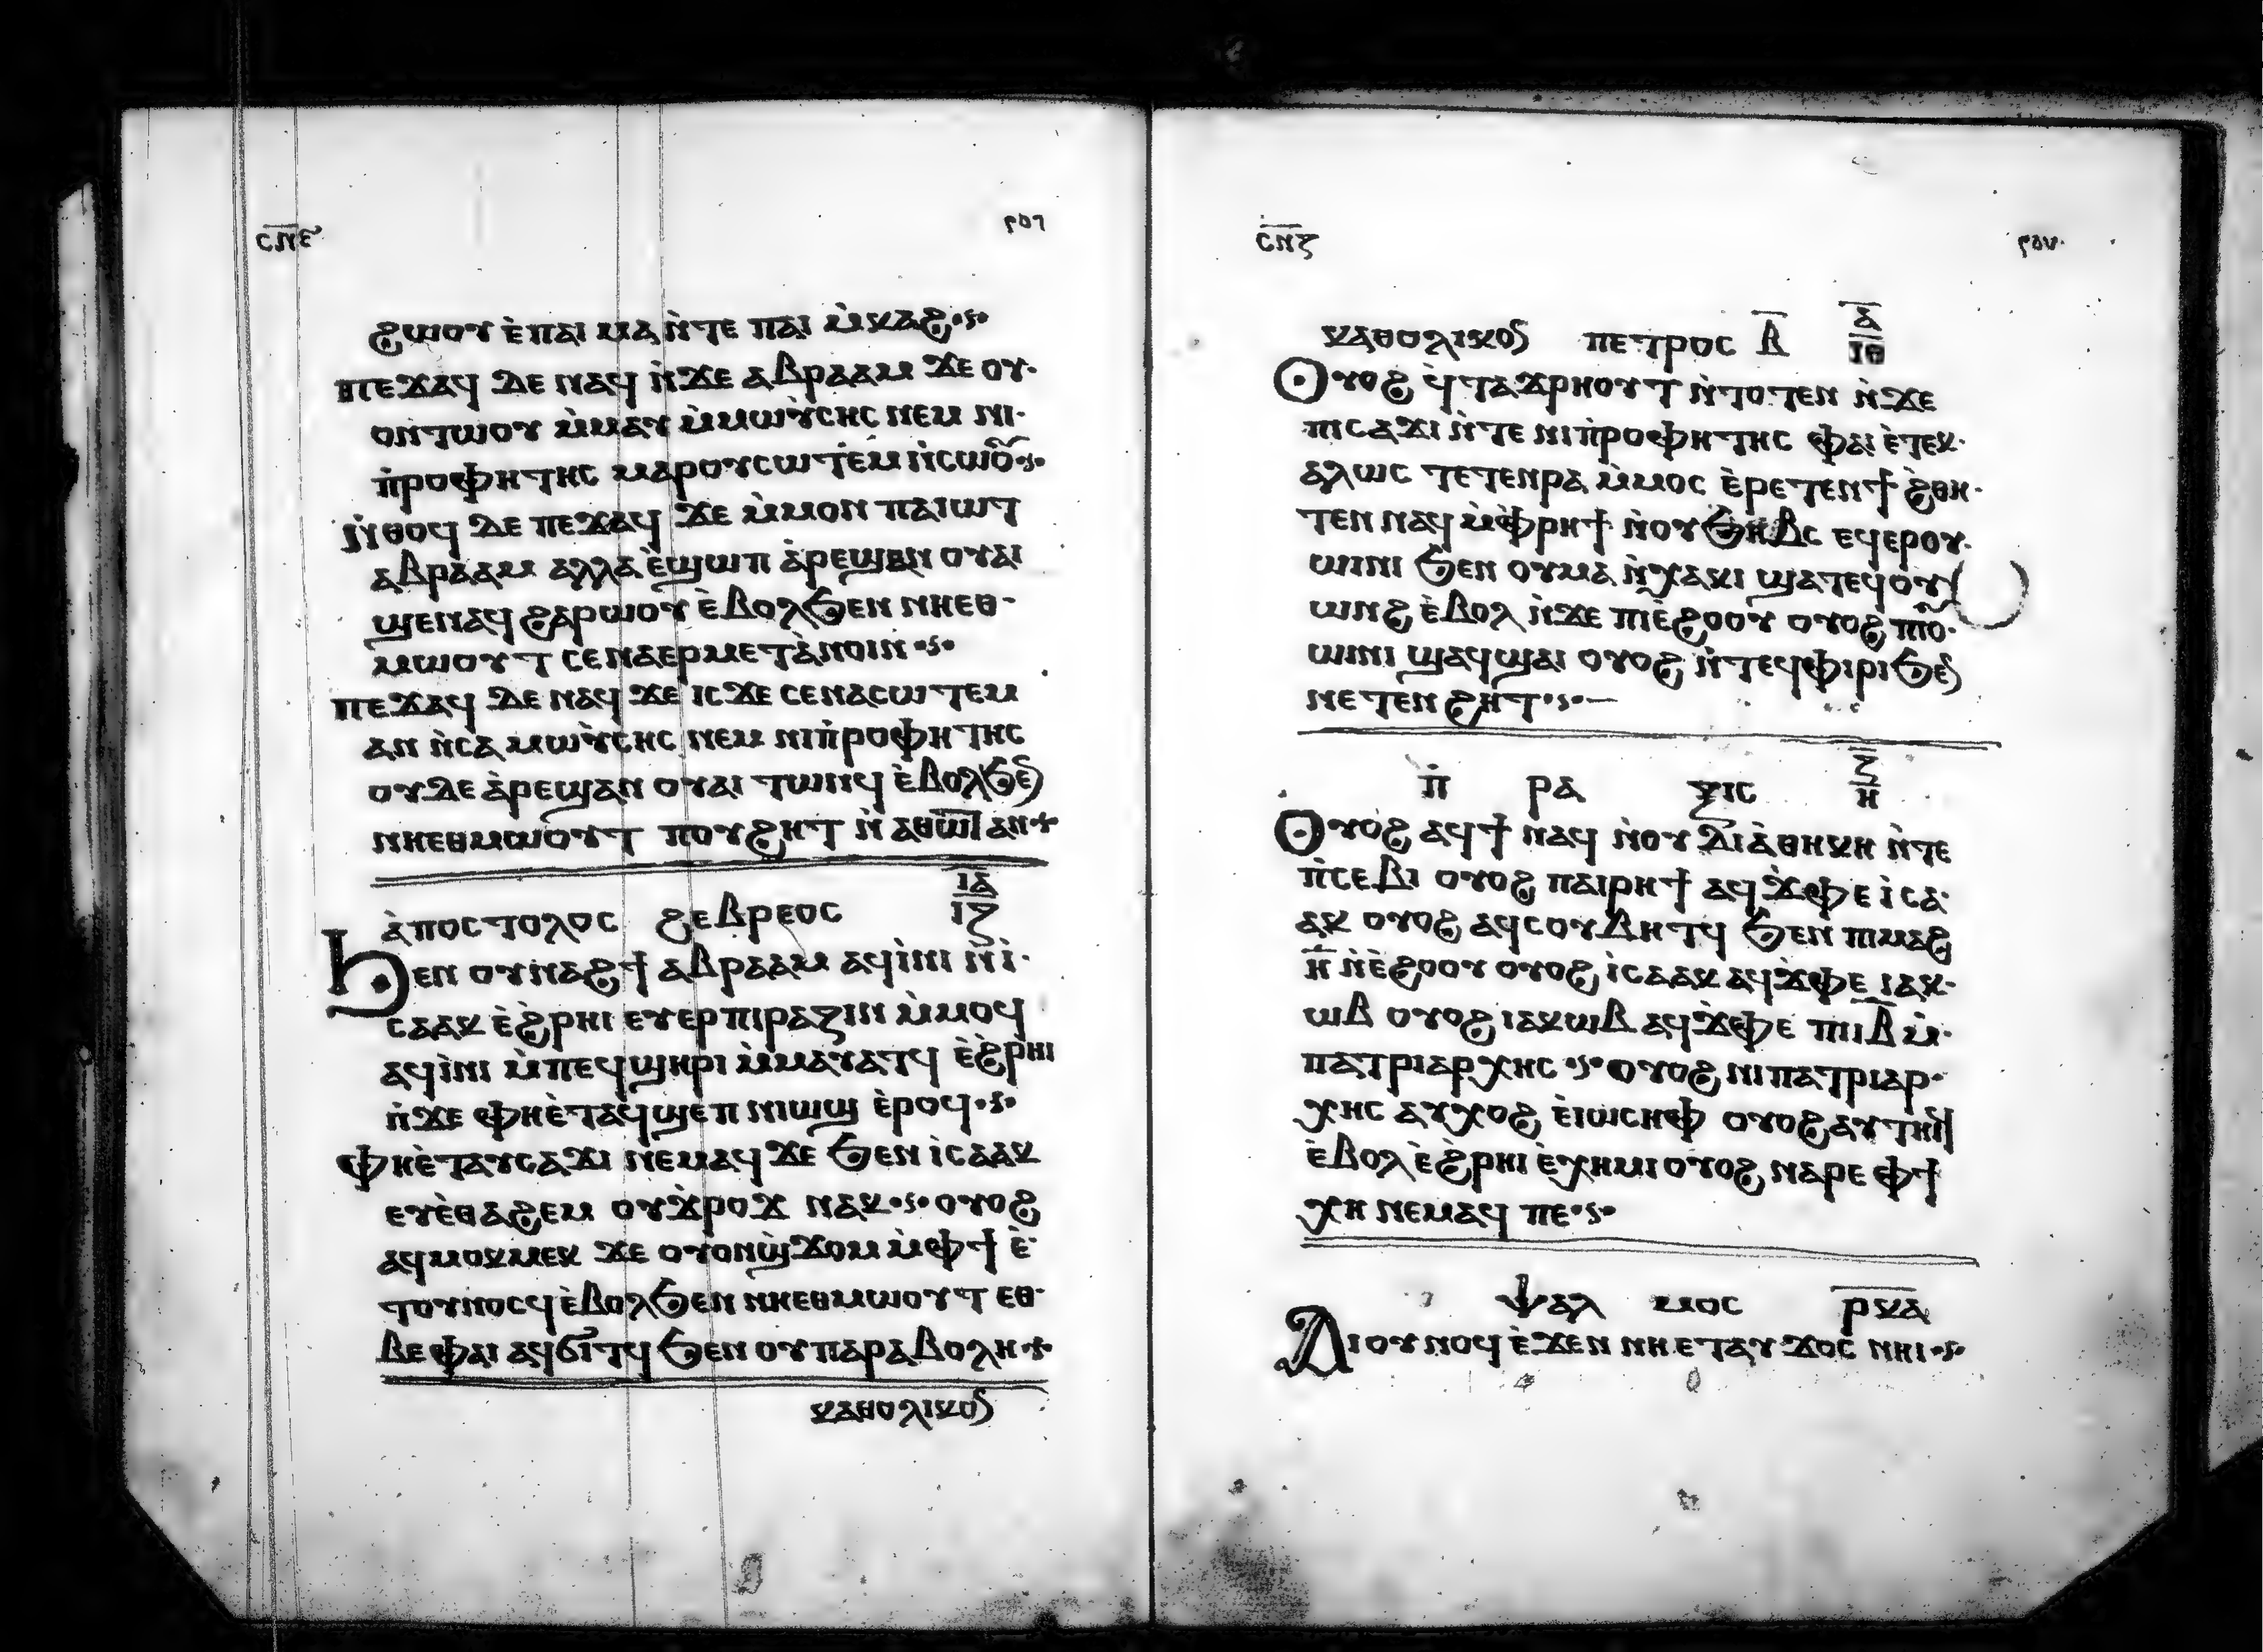 ⲥⲛ̅ⲋ
ϩⲱⲟⲩ ⲉ̀ⲡⲁⲓ ⲙⲁ ⲛ̀ⲧⲉ ⲡⲁⲓ ⲙ̀ⲕⲁϩ·ⲋ·
ⲡⲉϫⲁϥ ⲇⲉ ⲛⲁϥ ⲛ̀ϫⲉ ⲁⲃⲣⲁⲁⲙ ϫⲉ ⲟⲩ·
ⲟⲛⲧⲱⲟⲩ ⲙ̀ⲙⲁⲩ ⲙ̀ⲙⲱⲩ̀ⲥⲏⲥ ⲛⲉⲙ ⲛⲓ·
ⲡ̀ⲣⲟⲫⲏⲧⲏⲥ ⲙⲁⲣⲟⲩⲥⲱⲧⲉⲙ ⲛ̀ⲥⲱⲟ̅ⲩ·ⲋ·
ⲛ̀ⲑⲟϥ ⲇⲉ ⲡⲉϫⲁϥ ϫⲉ ⲙ̀ⲙⲟⲛ ⲡⲁⲓⲱⲧ
ⲁⲃⲣⲁⲁⲙ ⲁⲗⲗⲁ ⲉ̀ϣⲱⲡ ⲁ̀ⲣⲉϣⲁⲛ ⲟⲩⲁⲓ
ϣⲉⲛⲁϥ ϩⲁⲣⲱⲟⲩ ⲉ̀ⲃⲟⲗϧⲉⲛ ⲛⲏⲉⲑ·
ⲙⲱⲟⲩⲧ ⲥⲉⲛⲁⲉⲣⲙⲉⲧⲁ̀ⲛⲟⲓⲛ·ⲋ·
ⲡⲉϫⲁϥ ⲇⲉ ⲛⲁϥ ϫⲉ ⲓⲥϫⲉ ⲥⲉⲛⲁⲥⲱⲧⲉⲙ
ⲁⲛ ⲛ̀ⲥⲁ ⲙⲱⲩ̀ⲥⲏⲥ ⲛⲉⲙ ⲛⲓⲡ̀ⲣⲟⲫⲏⲧⲏⲥ
ⲟⲩⲇⲉ ⲁ̀ⲣⲉϣⲁⲛ ⲟⲩⲁⲓ ⲧⲱⲛϥ ⲉ̀ⲃⲟⲗϧⲉ
ⲛⲏⲉⲑⲙⲱⲟⲩⲧ ⲡⲟⲩϩⲏⲧ ⲛ̀ⲁⲑⲱ̅ⲧ ⲁⲛ+
ⲁ̀ⲡⲟⲥⲧⲟⲗⲟⲥ ϩⲉⲃⲣⲉⲟⲥ ⲓ̅ⲁ̅ ⲓⲍ
ϧⲉⲛ ⲟⲩⲛⲁϩϯ ⲁⲃⲣⲁⲁⲙ ⲁϥⲓ̀ⲛⲓ ⲛ̀ⲓ̀·
ⲥⲁⲁⲕ ⲉ̀ϩ̀ⲣⲏⲓ ⲉⲩⲉⲣⲡⲓⲣⲁⲍⲓⲛ ⲙ̀ⲙⲟϥ
ⲁϥⲓ̀ⲛⲓ ⲙ̀ⲡⲉϥϣⲏⲣⲓ ⲙ̀ⲙⲁⲩⲁⲧϥ ⲉ̀ϩ̀ⲣⲏⲓ
ⲛ̀ϫⲉ ⲫⲏⲉ̀ⲧⲁϥϣⲉⲡ ⲛⲓⲱϣ ⲉ̀ⲣⲟϥ·ⲋ·
ⲫⲏⲉ̀ⲧⲁⲩⲥⲁϫⲓ ⲛⲉⲙⲁϥ ϫⲉ ϧⲉⲛ ⲓ̀ⲥⲁⲁⲕ
ⲉⲩⲉ̀ⲑⲁϩⲉⲙ ⲟⲩϫ̀ⲣⲟϫ ⲛⲁⲕ·ⲋ·ⲟⲩⲟϩ
ⲁϥⲙⲟⲕⲙⲉⲕ ϫⲉ ⲟⲩⲟⲛϣ̀ϫⲟⲙ ⲙ̀ⲫϯ ⲉ̀·
ⲧⲟⲩⲛⲟⲥϥ ⲉ̀ⲃⲟⲗϧⲉⲛ ⲛⲏⲉⲑⲙⲱⲟⲩⲧ ⲉⲑ·
ⲃⲉⲫⲁⲓ ⲁϥϭⲓⲧϥ ϧⲉⲛ ⲟⲩⲡⲁⲣⲁⲃⲟⲗⲏ+
ⲕⲁⲑⲟⲗⲓⲕⲟⲥ
ⲥⲛ̅ⲍ
ⲕⲁⲑⲟⲗⲓⲕⲟⲥ ⲡⲉⲧⲣⲟⲥ ⲃ̅ ⲁ̅ ⲓⲑ
ⲟⲩⲟϩ ϥ̀ⲧⲁϫⲣⲏⲟⲩⲧ ⲛ̀ⲧⲟⲧⲉⲛ ⲛ̀ϫⲉ
ⲡⲓⲥⲁϫⲓ ⲛ̀ⲧⲉ ⲛⲓⲡ̀ⲣⲟⲫⲏⲧⲏⲥ ⲫⲁⲓ ⲉ̀ⲧⲉⲕ·
ⲁⲗⲱⲥ ⲧⲉⲧⲉⲛⲣⲁ ⲙ̀ⲙⲟⲥ ⲉ̀ⲣⲉⲧⲉⲛϯ ϩ̀ⲑⲏ·
ⲧⲉⲛ ⲛⲁϥ ⲙ̀ⲫⲣⲏϯ ⲛ̀ⲟⲩϧⲏⲃⲥ ⲉϥⲉⲣⲟⲩ·
ⲱⲓⲛⲓ ϧⲉⲛ ⲟⲩⲙⲁ ⲛ̀ⲭⲁⲕⲓ ϣⲁⲧⲉϥⲟⲩ
ⲱⲛϩ ⲉ̀ⲃⲟⲗ ⲛ̀ϫⲉ ⲡⲓⲉ̀ϩⲟⲟⲩ ⲟⲩⲟϩ ⲡⲓⲟ̅ⲩ·
ⲱⲓⲛⲓ ϣⲁϥϣⲁⲓ ⲟⲩⲟϩ ⲛ̀ⲧⲉϥⲫⲓⲣⲓ ϧⲉ
ⲛⲉⲧⲉⲛ ϩⲏⲧ·ⲋ·—
ⲡ̀ ⲣⲁ ⲝⲓⲥ ⲍ̅ ⲏ
ⲟⲩⲟϩ ⲁϥϯ ⲛⲁϥ ⲛ̀ⲟⲩ ⲇⲓⲁ̀ⲑⲏⲕⲏ ⲛ̀ⲧⲉ
ⲡ̀ⲥⲉⲃⲓ ⲟⲩⲟϩ ⲡⲁⲓⲣⲏϯ ⲁϥϫ̀ⲫⲉ ⲓ̀ⲥⲁ·
ⲁⲕ ⲟⲩⲟϩ ⲁϥⲥⲟⲩⲃⲏⲧϥ ϧⲉⲛ ⲡⲓⲙⲁϩ
ⲏ̅ ⲛ̀ⲉ̀ϩⲟⲟⲩ ⲟⲩⲟϩ ⲓ̀ⲥⲁⲁⲕ ⲁϥϫ̀ⲫⲉ ⲓⲁⲕ·
ⲱⲃ ⲟⲩⲟϩ ⲓⲁⲕⲱⲃ ⲁϥϫ̀ⲫⲉ ⲡⲓⲓ̅ⲃ̅ ⲙ̀·
ⲡⲁⲧⲣⲓⲁⲣⲭⲏⲥ·ⲋ·ⲟⲩⲟϩ ⲛⲓⲡⲁⲧⲣⲓⲁⲣ·
ⲭⲏⲥ ⲁⲩⲭⲟϩ ⲉ̀ⲓⲱⲥⲏⲫ ⲟⲩⲟϩ ⲁⲩⲧⲏⲓϥ
ⲉ̀ⲃⲟⲗ ⲉ̀ϩ̀ⲣⲏⲓ ⲉ̀ⲭⲏⲙⲓ ⲟⲩⲟϩ ⲛⲁⲣⲉ ⲫϯ
ⲭⲏ ⲛⲉⲙⲁϥ ⲡⲉ·ⲋ·
ⲯⲁⲗ ⲙⲟⲥ ⲣ̅ⲕ̅ⲁ̅
ⲁⲓⲟⲩⲛⲟϥ ⲉ̀ϫⲉⲛ ⲛⲏⲉⲧⲁⲩ ϫⲟⲥ ⲛⲏⲓ·ⲋ·